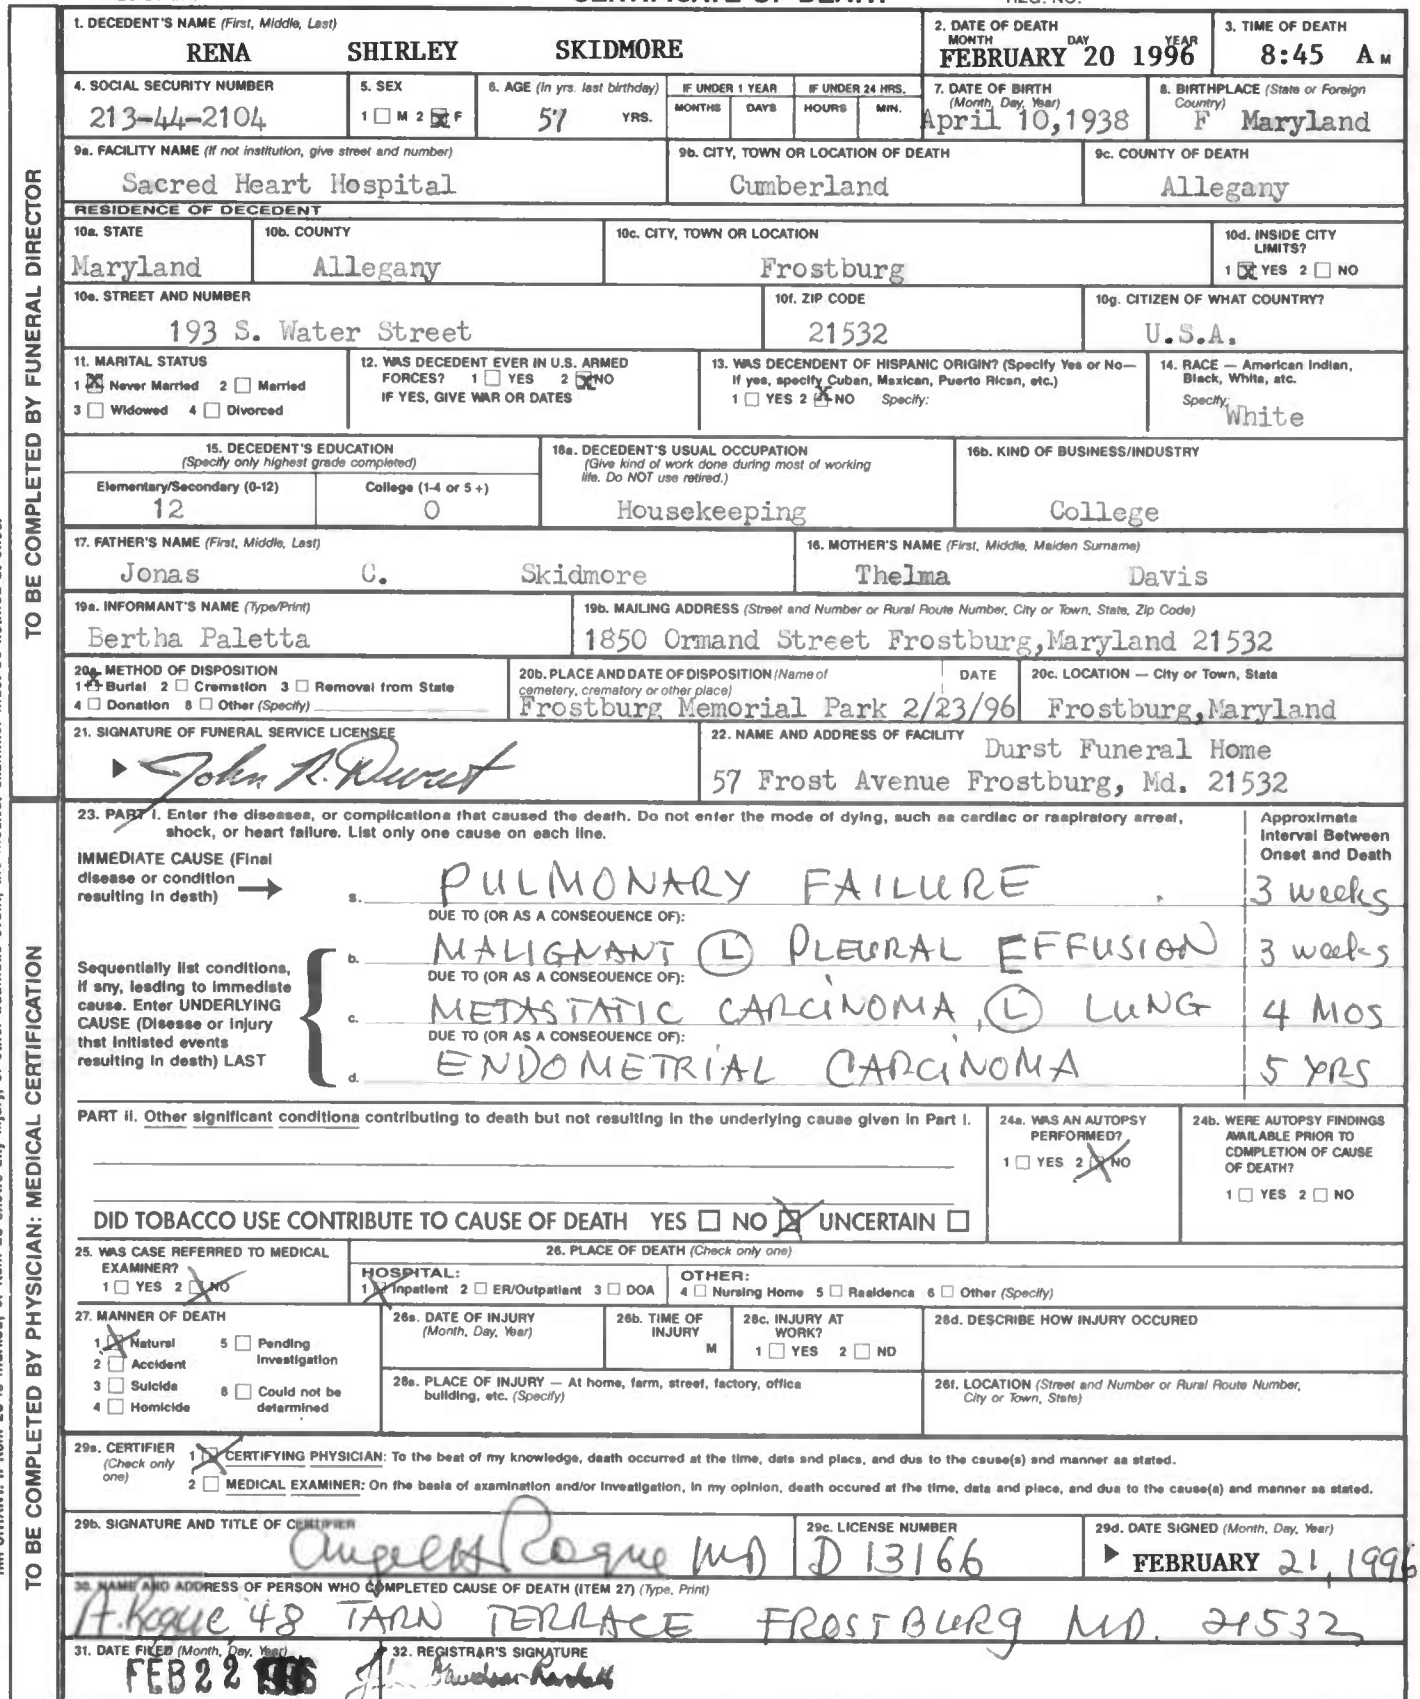 CERTIFICATE OF DEATH
REG. NO.
TO BE COMPLETED BY FUNERAL DIRECTOR
1. DECEDENT'S NAME (First, Middle, Last)
RENA SHIRLEY SKIDMORE
2. DATE OF DEATH
MONTH DAY YEAR
FEBRUARY 20 1996
3. TIME OF DEATH
8:45 A M
4. SOCIAL SECURITY NUMBER
213-44-2104
5. SEX
1 M 2 F
6. AGE (In yrs. last birthday)
57 YRS.
IF UNDER 1 YEAR
MONTHS DAYS
IF UNDER 24 HRS.
HOURS MIN.
7. DATE OF BIRTH
(Month, Day, Year)
April 10,1938
8. BIRTHPLACE (State or Foreign
Country)
F Maryland
9a. FACILITY NAME (If not institution, give street and number)
Sacred Heart Hospital
9b. CITY, TOWN OR LOCATION OF DEATH
Cumberland
9c. COUNTY OF DEATH
Allegany
RESIDENCE OF DECEDENT
10a. STATE
Maryland
10b. COUNTY
Allegany
10c. CITY, TOWN OR LOCATION
Frostburg
10d. INSIDE CITY
LIMITS?
1 YES 2 NO
10e. STREET AND NUMBER
193 S. Water Street
10f. ZIP CODE
21532
10g. CITIZEN OF WHAT COUNTRY?
U.S.A.
11. MARITAL STATUS
1 Never Married 2 Married
3 Widowed 4 Divorced
12. WAS DECEDENT EVER IN U.S. ARMED
FORCES? 1 YES 2 NO
IF YES, GIVE WAR OR DATES
13. WAS DECENDENT OF HISPANIC ORIGIN? (Specify Yes or No—
If yes, specify Cuban, Mexican, Puerto Rican, etc.)
1 YES 2 NO Specify:
14. RACE — American Indian,
Black, White, etc.
Specify:
White
15. DECEDENT'S EDUCATION
(Specify only highest grade completed)
Elementary/Secondary (0-12)
12
College (1-4 or 5+)
0
16a. DECEDENT'S USUAL OCCUPATION
(Give kind of work done during most of working
life. Do NOT use retired.)
Housekeeping
16b. KIND OF BUSINESS/INDUSTRY
College
17. FATHER'S NAME (First, Middle, Last)
Jonas C. Skidmore
18. MOTHER'S NAME (First, Middle, Maiden Surname)
Thelma Davis
19a. INFORMANT'S NAME (Type/Print)
Bertha Paletta
19b. MAILING ADDRESS (Street and Number or Rural Route Number, City or Town, State, Zip Code)
1850 Ormand Street Frostburg,Maryland 21532
20a. METHOD OF DISPOSITION
1 Burial 2 Cremation 3 Removal from State
4 Donation 8 Other (Specify)
20b. PLACE AND DATE OF DISPOSITION (Name of DATE
cemetery, crematory or other place)
Frostburg Memorial Park 2/23/96
20c. LOCATION — City or Town, State
Frostburg,Maryland
21. SIGNATURE OF FUNERAL SERVICE LICENSEE
John R. Durst
22. NAME AND ADDRESS OF FACILITY
Durst Funeral Home
57 Frost Avenue Frostburg, Md. 21532
TO BE COMPLETED BY PHYSICIAN: MEDICAL CERTIFICATION
23. PART I. Enter the diseases, or complications that caused the death. Do not enter the mode of dying, such as cardiac or respiratory arrest,
shock, or heart failure. List only one cause on each line.
Approximate
Interval Between
Onset and Death
IMMEDIATE CAUSE (Final
disease or condition
resulting in death)
a. PULMONARY FAILURE 3 weeks
DUE TO (OR AS A CONSEQUENCE OF):
b. MALIGNANT (L) PLEURAL EFFUSION 3 weeks
DUE TO (OR AS A CONSEQUENCE OF):
Sequentially list conditions,
if any, leading to immediate
cause. Enter UNDERLYING
CAUSE (Disease or injury
that initiated events
resulting in death) LAST
c. METASTATIC CARCINOMA, (L) LUNG 4 MOS
DUE TO (OR AS A CONSEQUENCE OF):
d. ENDOMETRIAL CARCINOMA 5 YRS
PART II. Other significant conditions contributing to death but not resulting in the underlying cause given in Part I.
24a. WAS AN AUTOPSY
PERFORMED?
1 YES 2 NO
24b. WERE AUTOPSY FINDINGS
AVAILABLE PRIOR TO
COMPLETION OF CAUSE
OF DEATH?
1 YES 2 NO
DID TOBACCO USE CONTRIBUTE TO CAUSE OF DEATH YES NO UNCERTAIN
25. WAS CASE REFERRED TO MEDICAL
EXAMINER?
1 YES 2 NO
26. PLACE OF DEATH (Check only one)
HOSPITAL:
1 Inpatient 2 ER/Outpatient 3 DOA
OTHER:
4 Nursing Home 5 Residence 6 Other (Specify)
27. MANNER OF DEATH
1 Natural 5 Pending
2 Accident Investigation
3 Suicide 6 Could not be
4 Homicide determined
28a. DATE OF INJURY
(Month, Day, Year)
28b. TIME OF
INJURY
M
28c. INJURY AT
WORK?
1 YES 2 NO
28d. DESCRIBE HOW INJURY OCCURED
28e. PLACE OF INJURY — At home, farm, street, factory, office
building, etc. (Specify)
28f. LOCATION (Street and Number or Rural Route Number,
City or Town, State)
29a. CERTIFIER
(Check only
one)
1 CERTIFYING PHYSICIAN: To the best of my knowledge, death occurred at the time, date and place, and due to the cause(s) and manner as stated.
2 MEDICAL EXAMINER: On the basis of examination and/or investigation, in my opinion, death occured at the time, date and place, and due to the cause(s) and manner as stated.
29b. SIGNATURE AND TITLE OF CERTIFIER
Angel H Roque MD
29c. LICENSE NUMBER
D 13166
29d. DATE SIGNED (Month, Day, Year)
FEBRUARY 21, 1996
30. NAME AND ADDRESS OF PERSON WHO COMPLETED CAUSE OF DEATH (ITEM 27) (Type, Print)
A. Roque 48 TARN TERRACE FROSTBURG MD. 21532
31. DATE FILED (Month, Day, Year)
FEB 22 1996
32. REGISTRAR'S SIGNATURE